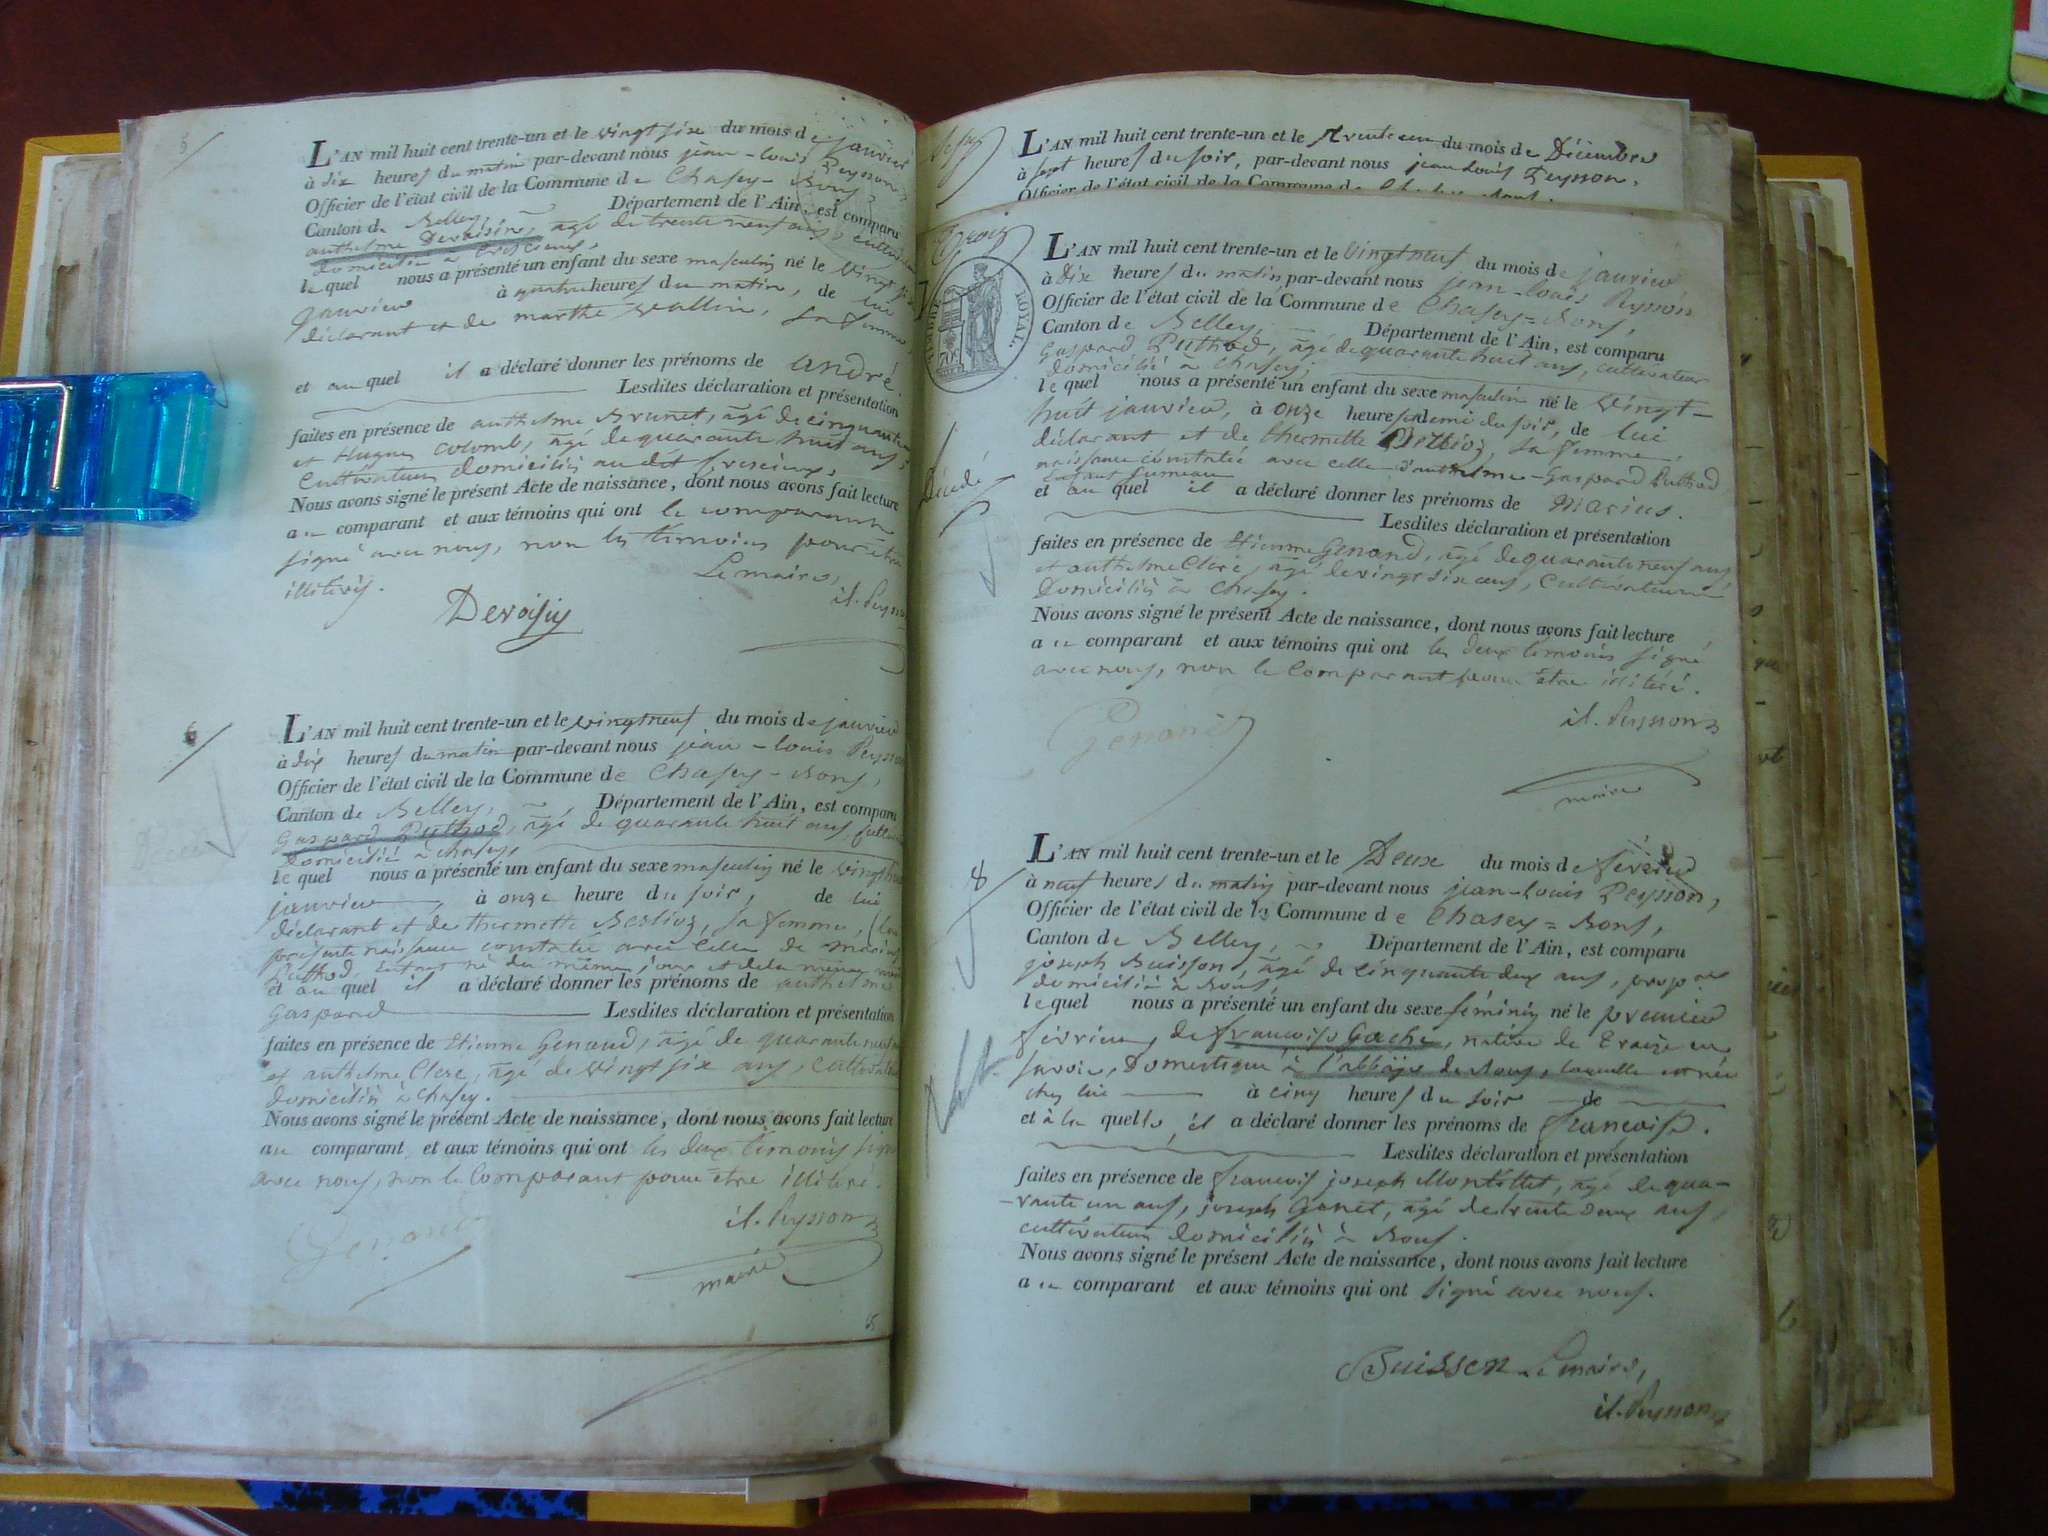 5
L'AN mil huit cent trente-un et le vingt six du mois de janvier
à dix heures du matin par-devant nous jean-louis Peysson
Officier de l'état civil de la Commune de Chasey-Bons
Canton de Belley, Département de l'Ain, est comparu
anthelme Devoisin, agé de trente neuf ans,
domicilié à
le quel nous a présenté un enfant du sexe masculin né le vingt
janvier à quatre heures du matin, de lui
déclarant et de marthe Vallin, sa femme,
et au quel il a déclaré donner les prénoms de andré.
Lesdites déclaration et présentation
faites en présence de anthelme Brunet, agé de cinquante
et hugues Colomb, agé de quarante huit ans,
cultivateurs domiciliés au dit
Nous avons signé le présent Acte de naissance, dont nous avons fait lecture
au comparant et aux témoins qui ont le comparant
signé avec nous, non les témoins pour être
illitérés.
Le maire,
Devoisin
il. Peysson
6
L'AN mil huit cent trente-un et le vingt neuf du mois de janvier
à dix heures du matin par-devant nous jean-louis Peysson
Officier de l'état civil de la Commune de Chasey-Bons,
Canton de Belley, Département de l'Ain, est comparu
Gaspard Puthod, agé de quarante huit ans,
domicilié à chasey,
le quel nous a présenté un enfant du sexe masculin né le vingt huit
janvier, à onze heure du soir, de lui
déclarant et de thermette Berlioz, sa femme,
présente naissance constatée avec celle de marius
Puthod, enfant né du même jour et de la même
et au quel il a déclaré donner les prénoms de anthelme
Gaspard Lesdites déclaration et présentation
faites en présence de Etienne Genand, agé de quarante neuf
et anthelme Clerc, agé de vingt six ans,
domiciliés à chasey.
Nous avons signé le présent Acte de naissance, dont nous avons fait lecture
au comparant et aux témoins qui ont les deux témoins signé
avec nous, non le Comparant pour être illitéré.
Genand
il. Peysson
maire
L'AN mil huit cent trente-un et le trente un du mois de Décembre
à sept heures du soir, par-devant nous jean Louis Peysson,
Officier de l'état civil de la Commune de
TIMBRE ROYAL.
L'AN mil huit cent trente-un et le vingt neuf du mois de janvier,
à Dix heures du matin, par-devant nous jean-louis Peysson
Officier de l'état civil de la Commune de Chasey-Bons,
Canton de Belley, Département de l'Ain, est comparu
Gaspard Puthod, agé de quarante huit ans, cultivateur
domicilié à Chasey,
le quel nous a présenté un enfant du sexe masculin né le vingt-
huit janvier, à onze heures et demi du soir, de lui
déclarant et de thermette Berlioz, sa femme,
naissance constatée avec celle d'anthelme-Gaspard Puthod
Enfant Jumeau
Décédé
et au quel il a déclaré donner les prénoms de Marius.
Lesdites déclaration et présentation
faites en présence de Etienne Genand, agé de quarante neuf ans,
et anthelme Clerc, agé de vingt six ans, Cultivateurs
Domiciliés à Chasey.
Nous avons signé le présent Acte de naissance, dont nous avons fait lecture
au comparant et aux témoins qui ont les deux témoins signé
avec nous, non le Comparant pour être illitéré.
Genand
il. Peysson
maire
8
L'AN mil huit cent trente-un et le Deux du mois de février
à neuf heures du matin par-devant nous jean-Louis Peysson,
Officier de l'état civil de la Commune de Chasey=Bons,
Canton de Belley, Département de l'Ain, est comparu
joseph Buisson, agé de cinquante deux ans,
domicilié à Bons,
le quel nous a présenté un enfant du sexe féminin né le premier
février, de françoise Gache, native de
savoie, Domestique à l'abbaye de Bons, laquelle
chez lui à cinq heures du soir de
et à la quelle il a déclaré donner les prénoms de françoise.
Lesdites déclaration et présentation
faites en présence de francois joseph Montillet, agé de qua-
-rante un ans, joseph Ganet, agé de trente deux ans,
cultivateurs domiciliés à Bons.
Nous avons signé le présent Acte de naissance, dont nous avons fait lecture
au comparant et aux témoins qui ont signé avec nous.
Buisson Le maire,
il. Peysson